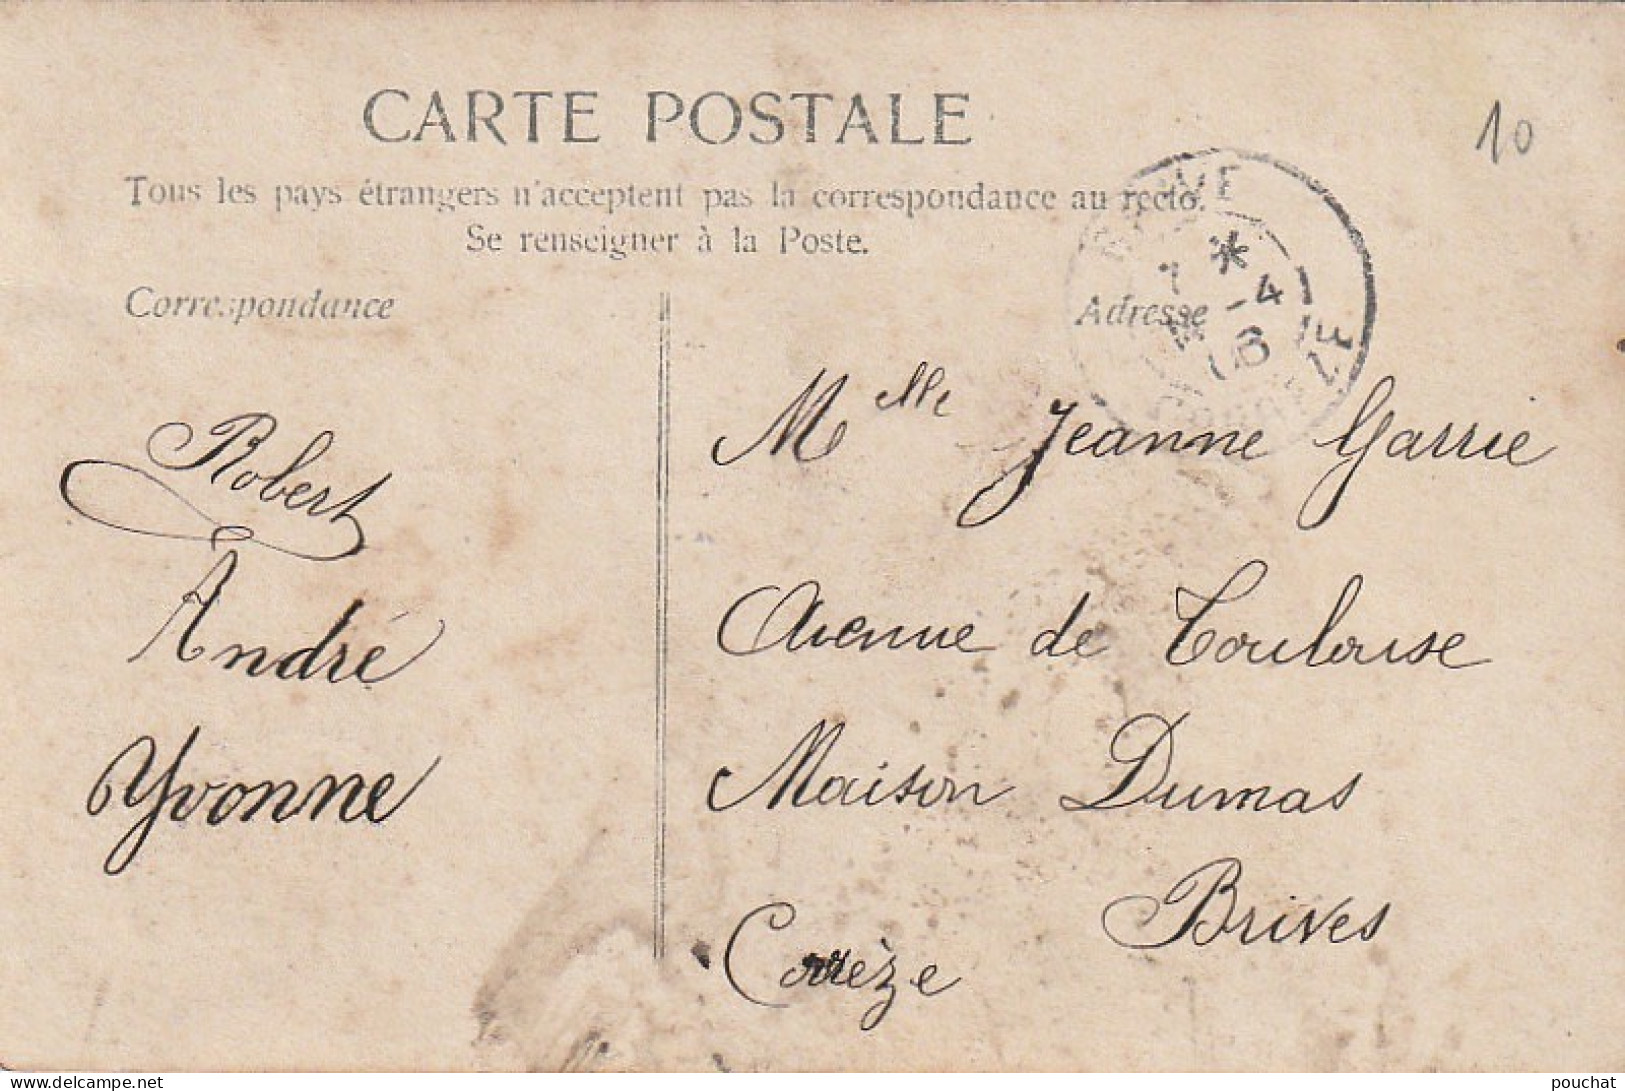 CARTE POSTALE
10
Tous les pays étrangers n'acceptent pas la correspondance au recto.
Se renseigner à la Poste.
Correspondance
Adresse
BRIVE
Robert
André
Yvonne
Mlle Jeanne Garrie
Avenue de Toulouse
Maison Dumas
Brives
Corrèze
www.delcampe.net
pouchat